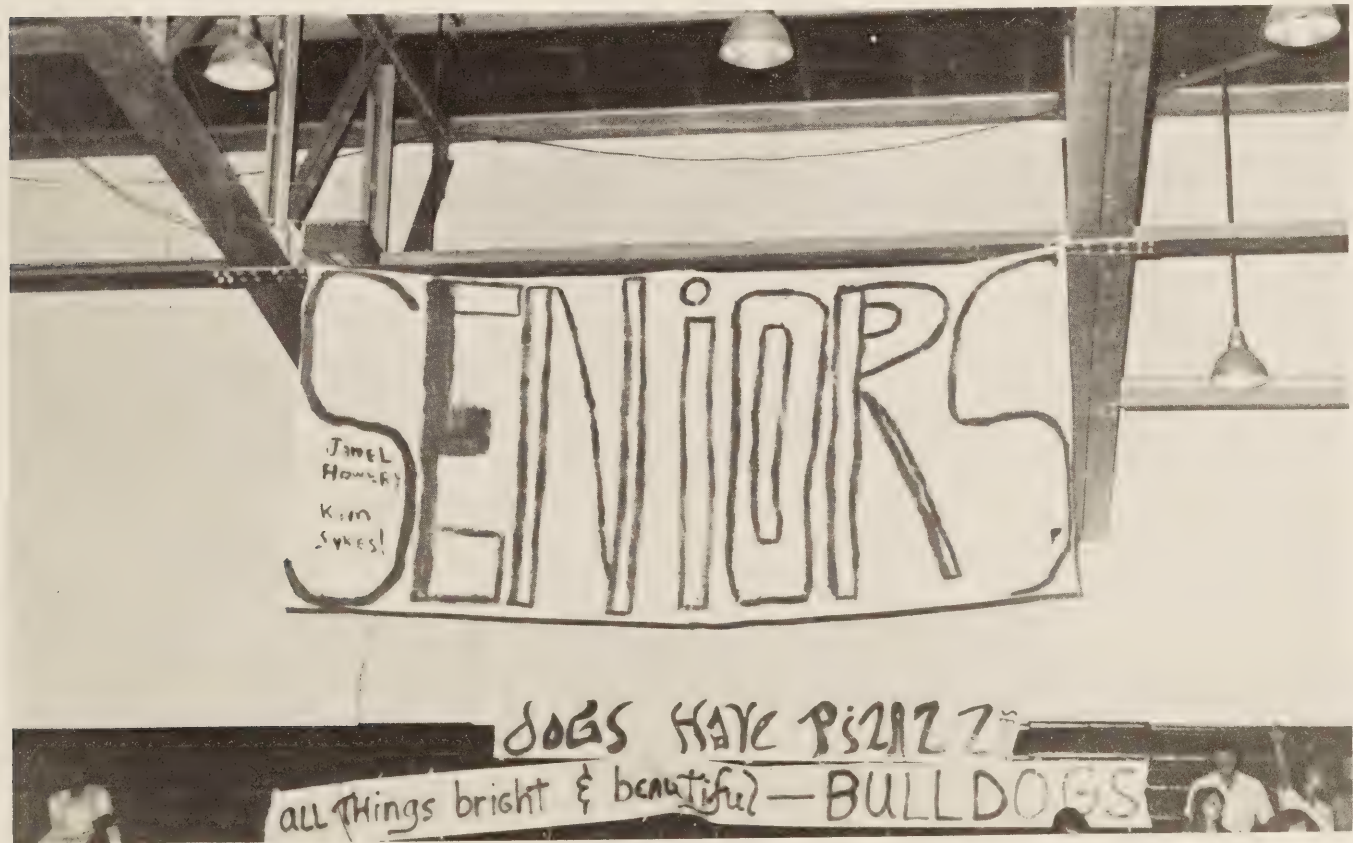 SENiORS
JANEL
HOWERY
Kim
SYKES!
dOGS HAVE PiZAZZ
aLL THings bright & beautiful — BULLDOGS